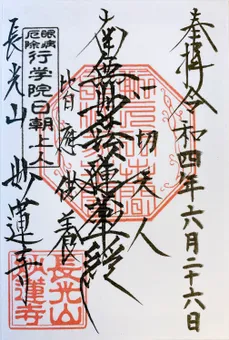 奉拝 令和四年六月二十六日
一切天人
南無妙法蓮華経
皆應供養
眼病
厄除
行学院日朝上人
長光山 妙蓮寺
長光山
妙蓮寺